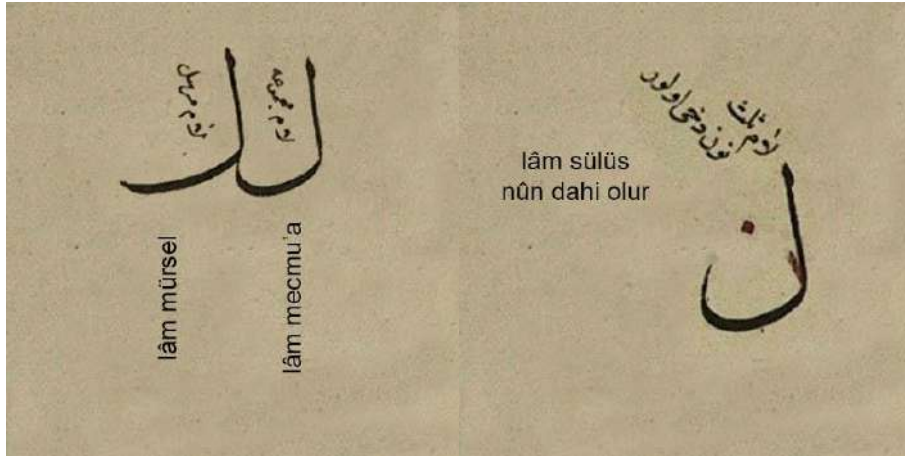 لام مرسل
لام مجموعه
لل
lâm mürsel
lâm mecmu'a
لام ثلث
نون دخى اولور
lâm sülüs
nûn dahi olur
ل